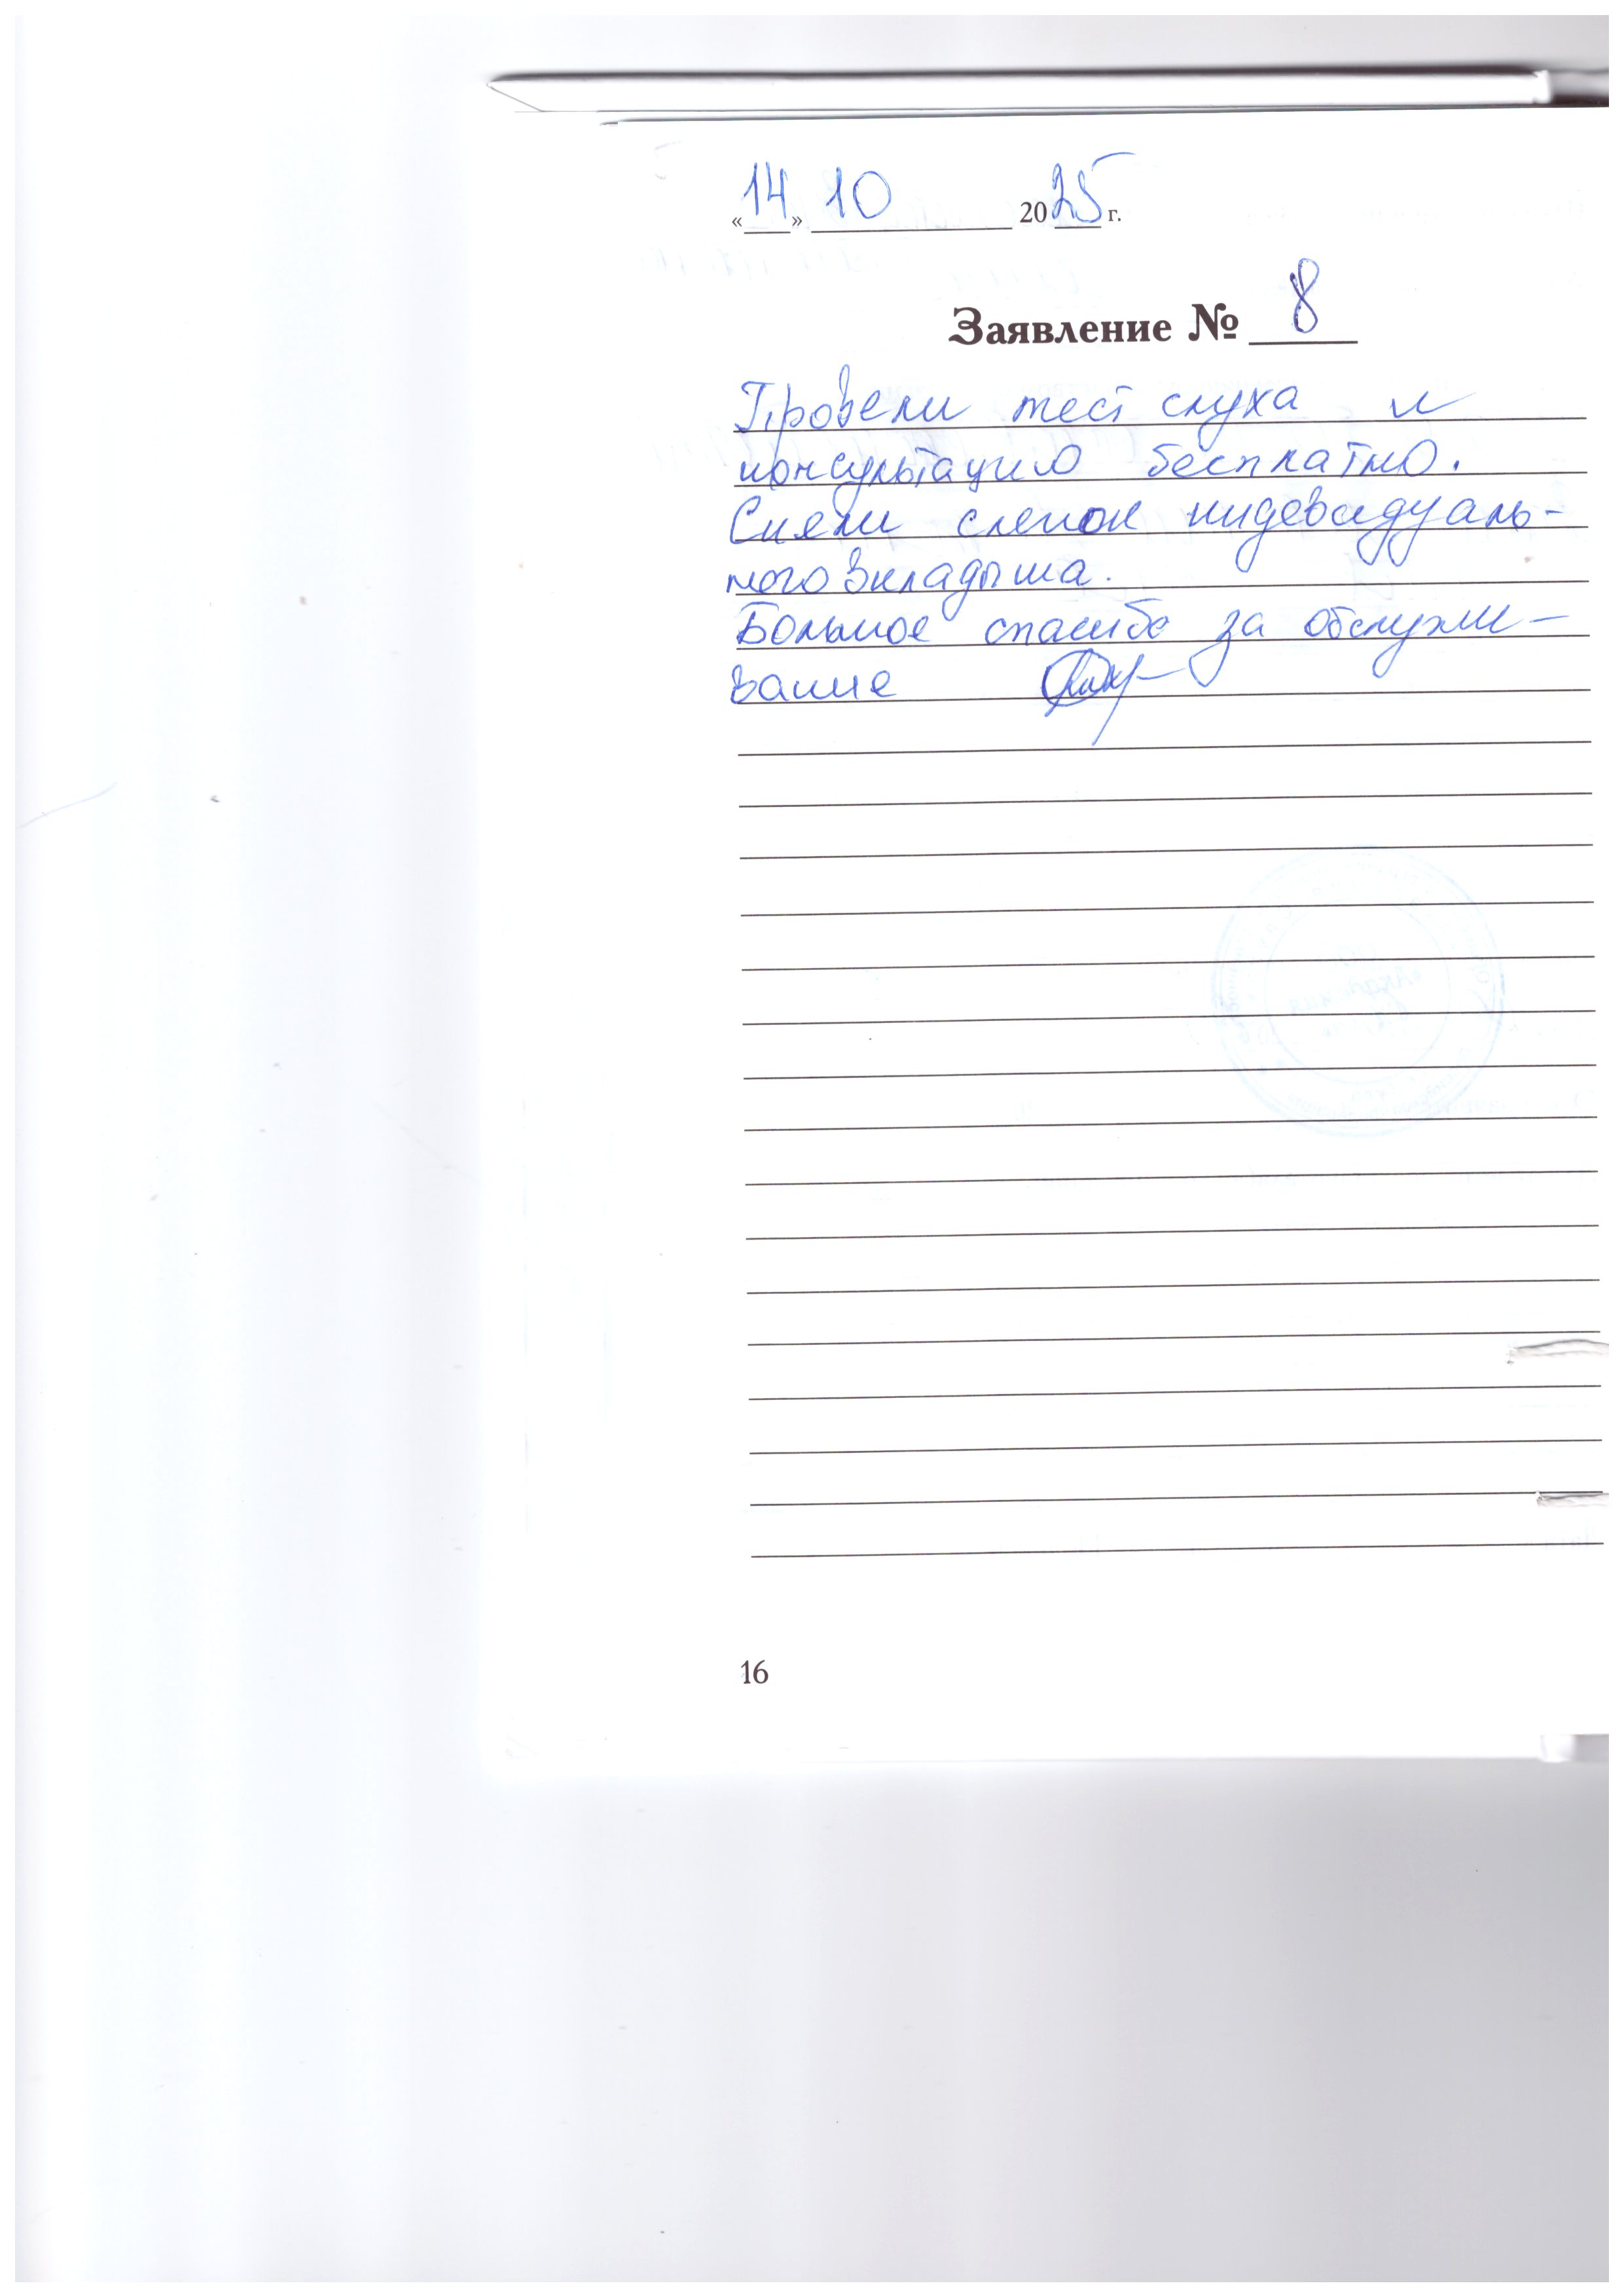 «14» 10 2025 г.
Заявление № 8
Провели тест слуха и
консультацию бесплатно.
Сняли слепок индевидуаль-
ного вкладыша.
Большое спасибо за обслужи-
вание
16